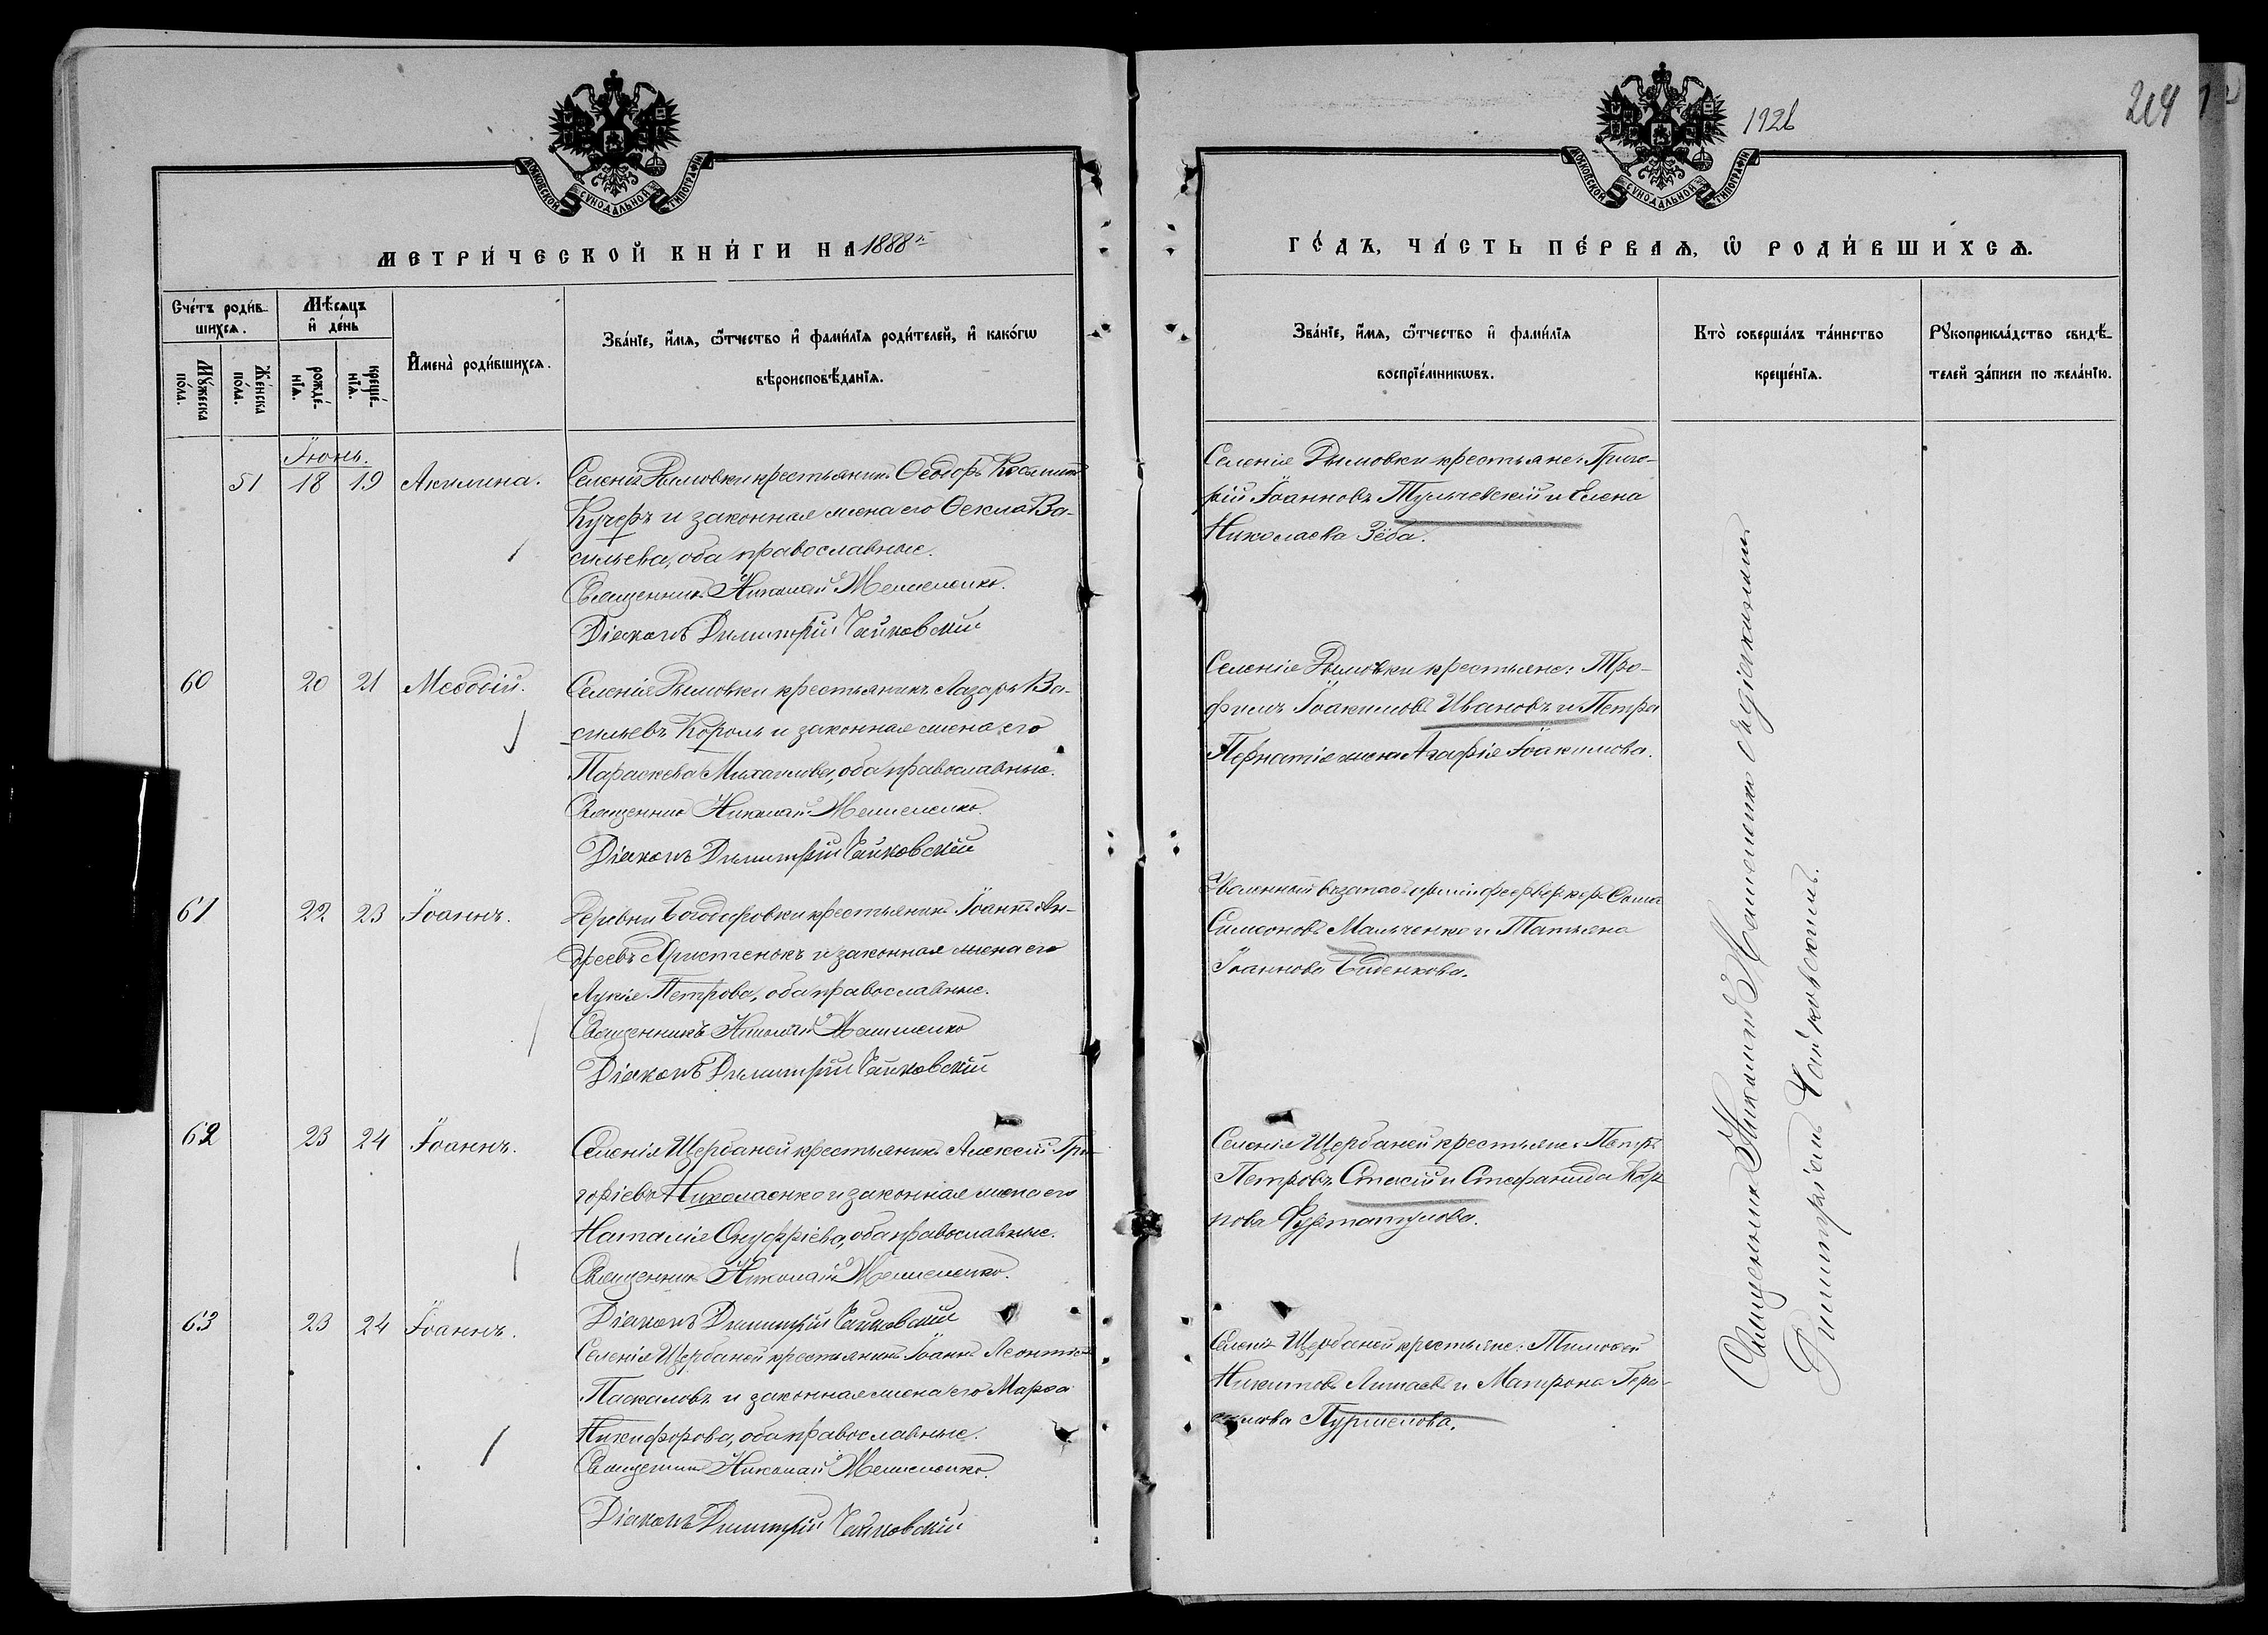 1926
214
МОСКОВСКОЙ СУНОДАЛЬНОЙ ТИПОГРАФІИ
МОСКОВСКОЙ СУНОДАЛЬНОЙ ТИПОГРАФІИ
МЕТРИ́ЧЕСКОЙ КНИ́ГИ НА 1888й
ГО́ДЪ, ЧА́СТЬ ПЕ́РВАѦ, Ѡ҆ РОДИ́ВШИХСѦ.
Сче́тъ роди́в-
шихсѧ.
Мꙋ́жеска по́ла.
Же́нска по́ла.
Мѣ́сѧцъ
и҆ де́нь
рожде́-
нїѧ.
креще́-
нїѧ.
И҆мена̀ роди́вшихсѧ.
Зва́нїе, и҆́мѧ, ѻ҆́тчество и҆ фами́лїѧ роди́телей, и҆ како́гѡ
вѣроисповѣ́данїѧ.
Зва́нїе, и҆́мѧ, ѻ҆́тчество и҆ фами́лїѧ
воспрїе́мникѡвъ.
Кто̀ соверша́лъ та́инство
креще́нїѧ.
Рꙋкоприкла́дство свидѣ́-
телей за́писи по жела́нїю.
Іюнь.
51 18 19 Акилина.
Селенія Дымовки крестьянинъ Ѳеодоръ Косминъ
Кучеръ и законная жена его Ѳекла Ва-
сильева, оба православные.
Священникъ Николай Машененко.
Діаконъ Димитрій Чайковскій
Селенія Дымовки крестьяне: Григо-
рій Іоанновъ Тульчевскій и Елена
Николаева Зёба.
60 20 21 Меѳодій.
Селенія Дымовки крестьянинъ Лазарь Ва-
сильевъ Король и законная жена его
Параскева Михаилова, оба православные.
Священникъ Николай Машененко.
Діаконъ Димитрій Чайковскій
Селенія Дымовки крестьяне: Тро-
фимъ Іоакимовъ Ивановъ и Петра
жена Агафія Іоакимова.
61 22 23 Іоаннъ.
Деревни Богодаровки крестьянинъ Іоаннъ Ан-
дреевъ и законная жена его
Лукія Петрова, оба православные.
Священникъ Николай Машененко
Діаконъ Димитрій Чайковскій
Уволенный въ запасъ арміи фейерверкеръ
Симеоновъ Мальченко и Татьяна
Іоаннова Биденкова.
62 23 24 Іоаннъ.
Селенія Щербаней крестьянинъ Алексій Гри-
горіевъ Николаенко и законная жена его
Наталія Онуфріева, оба православные.
Священникъ Николай Машененко.
Діаконъ Димитрій Чайковскій
Селенія Щербаней крестьяне: Петръ
Петровъ Стасій и Стефанида Кар-
пова
63 23 24 Іоаннъ.
Селенія Щербаней крестьянинъ Іоаннъ Леонтіевъ
Паскаловъ и законная жена его Марѳа
Никифорова, оба православные.
Священникъ Николай Машененко.
Діаконъ Димитрій Чайковскій
Селенія Щербаней крестьяне: Тимоѳей
Никитовъ и Матрона Гера-
симова
Священникъ Николай Машененко съ діакономъ
Димитріемъ Чайковскимъ.